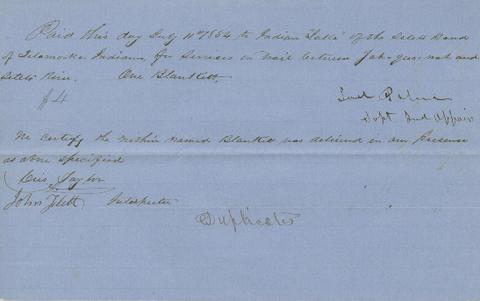 Paid this day July 11th 1854 to Indian "Luke" of the Seletz Band
of Telamooke Indians, for Services in trail between Jah-quo-nah and
Seletz River. One Blankett.
$4
Joel Palmer
Supt Ind Affairs
We certify the within named Blankett was delivered in our presence
as above specified
Cris Taylor
John Flett Interpreter
Duplicate